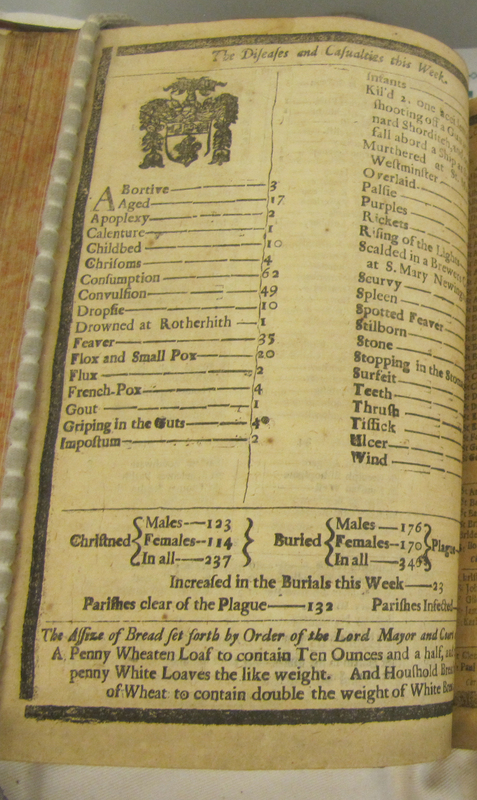 The Diseases and Casualties this Week.
Abortive 3
Aged 17
Apoplexy 2
Calenture 1
Childbed 10
Chrisoms 4
Consumption 62
Convulsion 49
Dropsie 10
Drowned at Rotherhith 1
Feaver 35
Flox and Small Pox 20
Flux 2
French-Pox 4
Gout 1
Griping in the Guts
Impostum 2
Infants
Kil'd 2, one
shooting off a
nard Shorditch,
fall abord a Ship
Murthered at
Westminster
Overlaid
Palsie
Purples
Rickets
Rising of the Lights
Scalded in a Brewers
at S. Mary
Scurvy
Spleen
Spotted Feaver
Stilborn
Stone
Stopping in the
Surfeit
Teeth
Thrush
Tissick
Ulcer
Wind
Christned { Males 123 Females 114 In all 237 }
Buried { Males 176 Females 170 In all 346 } Plague
Increased in the Burials this Week 23
Parishes clear of the Plague 132 Parishes Infected
The Assize of Bread set forth by Order of the Lord Mayor and
A Penny Wheaten Loaf to contain Ten Ounces and a half, and
penny White Loaves the like weight. And Houshold
of Wheat to contain double the weight of White